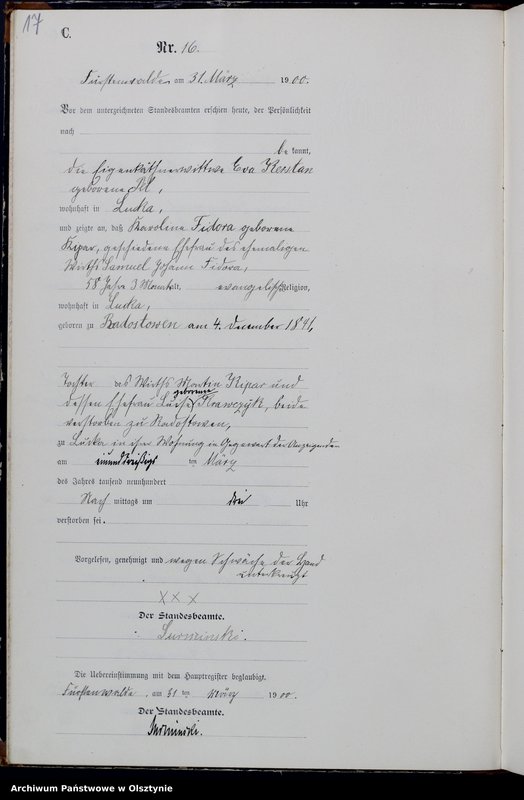 17
C.
Nr. 16.
Fürstenwalde am 31. März 1900.
Vor dem unterzeichneten Standesbeamten erschien heute, der Persönlichkeit
nach
bekannt,
die Eigenkäthnerwittwe Eva
geborene
wohnhaft in Lucka,
und zeigte an, daß Karoline Fidora geborene
Kipar, geschiedene Ehefrau des ehemaligen
Wirths Samuel Johann Fidora,
58 Jahre 3 Monat alt, evangelischer Religion,
wohnhaft in Lucka,
geboren zu Radostowen am 4. December 1841,
Tochter des Wirths Martin Kipar und
geborene
dessen Ehefrau Krawczyk, beide
verstorben zu Radostowen,
zu Lucka in ihrer Wohnung in Gegenwart der Anzeigenden
am einunddreißigsten März
des Jahres tausend neunhundert
Nach mittags um drei Uhr
verstorben sei.
Vorgelesen, genehmigt und wegen Schwäche der Hand
unterkreuzt
X X X
Der Standesbeamte.
Surminski.
Die Uebereinstimmung mit dem Hauptregister beglaubigt.
Fürstenwalde, am 31 ten März 1900.
Der Standesbeamte.
Surminski.
Archiwum Państwowe w Olsztynie